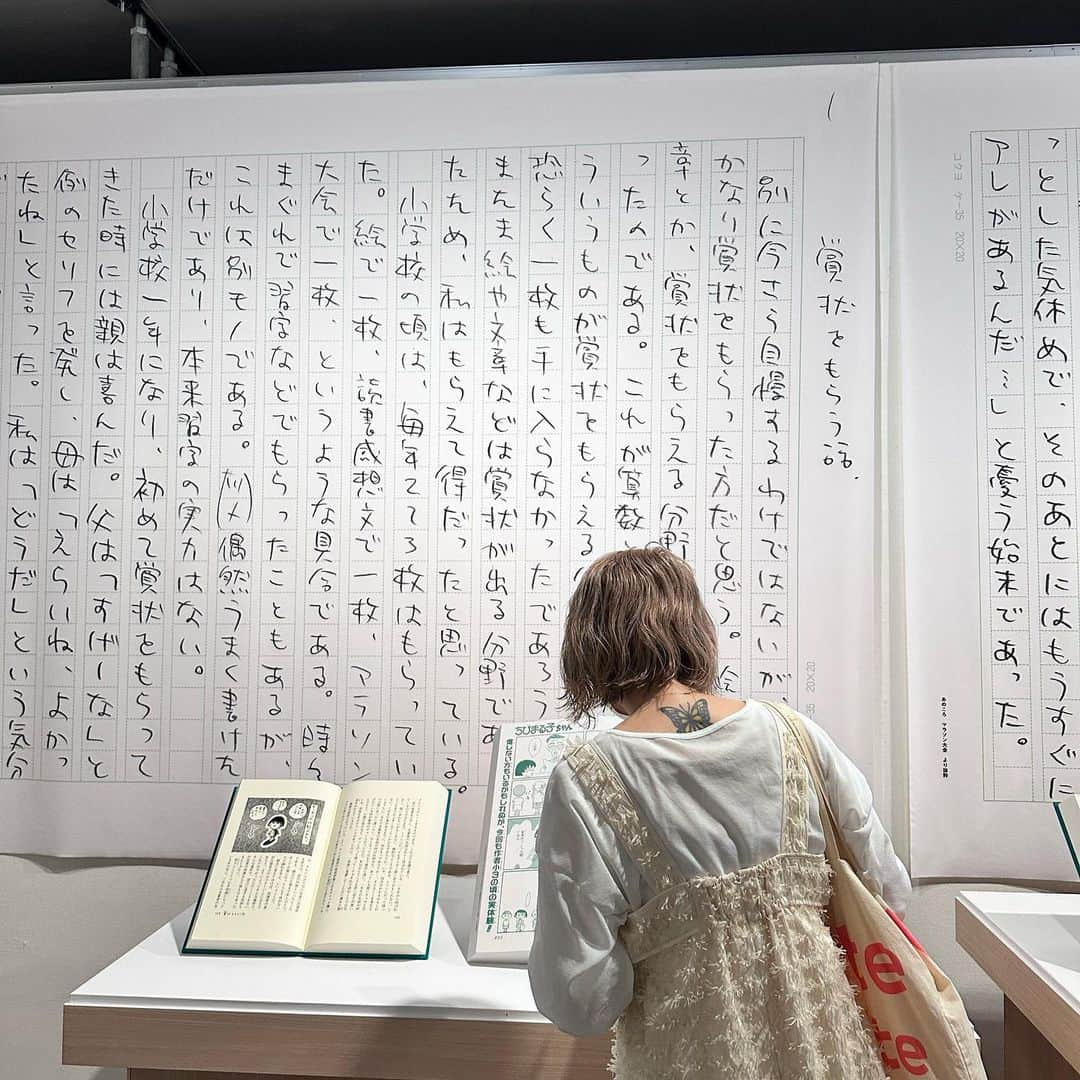 っとした気休めで、そのあとにはもうすぐに
アレがあるんだ…」と憂う始末であった。
あのころ マラソン大会 より抜粋
コクヨ ケー35 20×20
賞状をもらう話.
別に今さら自慢するわけではないが、
かなり賞状をもらった方だと思う。絵
章とか、賞状をもらえる分野
ったのである。これが算数
ういうものが賞状をもらえる
恐らく一枚も手に入らなかったであろう
またま絵や文章などは賞状が出る分野であ
たため、私はもらえて得だったと思っている。
小学校の頃は、毎年2~3枚はもらってい
た。絵で一枚、読書感想文で一枚、マラソン
大会で一枚、というような具合である。時々
まぐれで習字などでもらったこともあるが、
これは別モノである。偶然うまく書けた
だけであり、本来習字の実力はない。
小学校一年になり、初めて賞状をもらって
きた時には親は喜んだ。父は「すげーな」と
例のセリフを発し、母は「えらいね、よかっ
たね」と言った。私は「どうだ」という気分
35 20×20
ちびまる子ちゃん
信じない方もいるかもしれぬが、今回も作者小3の頃の実体験!
te
te